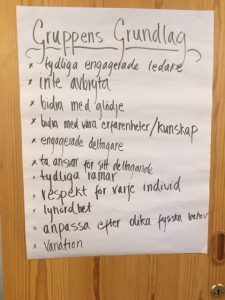 Gruppens Grundlag
x tydliga engagerade ledare
x inte avbryta
x bidra med glädje
x bidra med våra erfarenheter/kunskap
x engagerade deltagare
x ta ansvar för sitt deltagande
x tydliga ramar
x respekt för varje individ
x lyhördhet
x anpassa efter olika fysiska behov
x variation